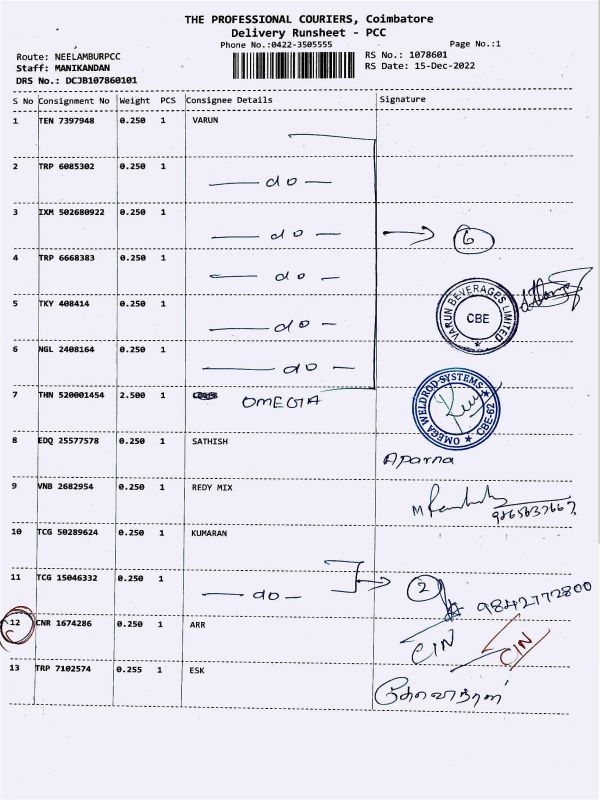 THE PROFESSIONAL COURIERS, Coimbatore
Delivery Runsheet - PCC
Phone No.:0422-3505555 Page No.:1
Route: NEELAMBURPCC RS No.: 1078601
Staff: MANIKANDAN RS Date: 15-Dec-2022
DRS No.: DCJB107860101
S No Consignment No Weight PCS Consignee Details Signature
1 TEN 7397948 0.250 1 VARUN
2 TRP 6085302 0.250 1 do
3 IXM 502680922 0.250 1 do 6
4 TRP 6668383 0.250 1 do
5 TKY 408414 0.250 1 do
VARUN BEVERAGES LIMITED
CBE
6 NGL 2408164 0.250 1 do
7 THN 520001454 2.500 1 OMEGA
OMEGA WELDROD SYSTEMS
CBE-62
8 EDQ 25577578 0.250 1 SATHISH Aparna
9 VNB 2682954 0.250 1 REDY MIX
10 TCG 50289624 0.250 1 KUMARAN
11 TCG 15046332 0.250 1 do 2 9842772800
12 CNR 1674286 0.250 1 ARR CIN CIN
13 TRP 7102574 0.255 1 ESK